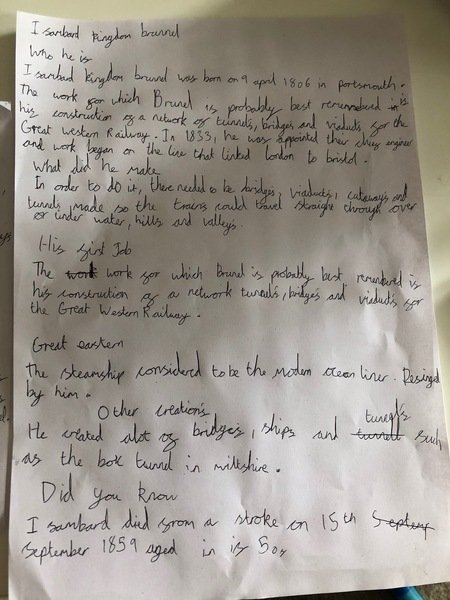 I sambard kingdom brunnel
Who he is
I sambard kingdom brunel was born on 9 april 1806 in portsmouth.
The work for which Brunel is probably best remembered in is
his construction of a network of tunnels, bridges and viaducts for the
Great Western Railway. In 1833, he was appointed their chief engineer
and work began on the line that linked london to bristol.
What did he make
In order to do it, there needed to be bridges, viaducts, cutaways and
tunnels, made so the trains could travel straight through over
or under water, hills and valleys.
His first Job
The work work for which Brunel is probably best remembered is
his construction of a network tunnels, bridges and viaducts for
the Great Western Railway.
Great eastern
The steamship considered to be the modern ocean liner. Desinged
by him.
Other creations
He created alot of bridges, ships and tunnels such
as the box tunnel in wiltshire.
Did you know
I sambard died from a stroke on 15th
september 1859 aged in is 50s